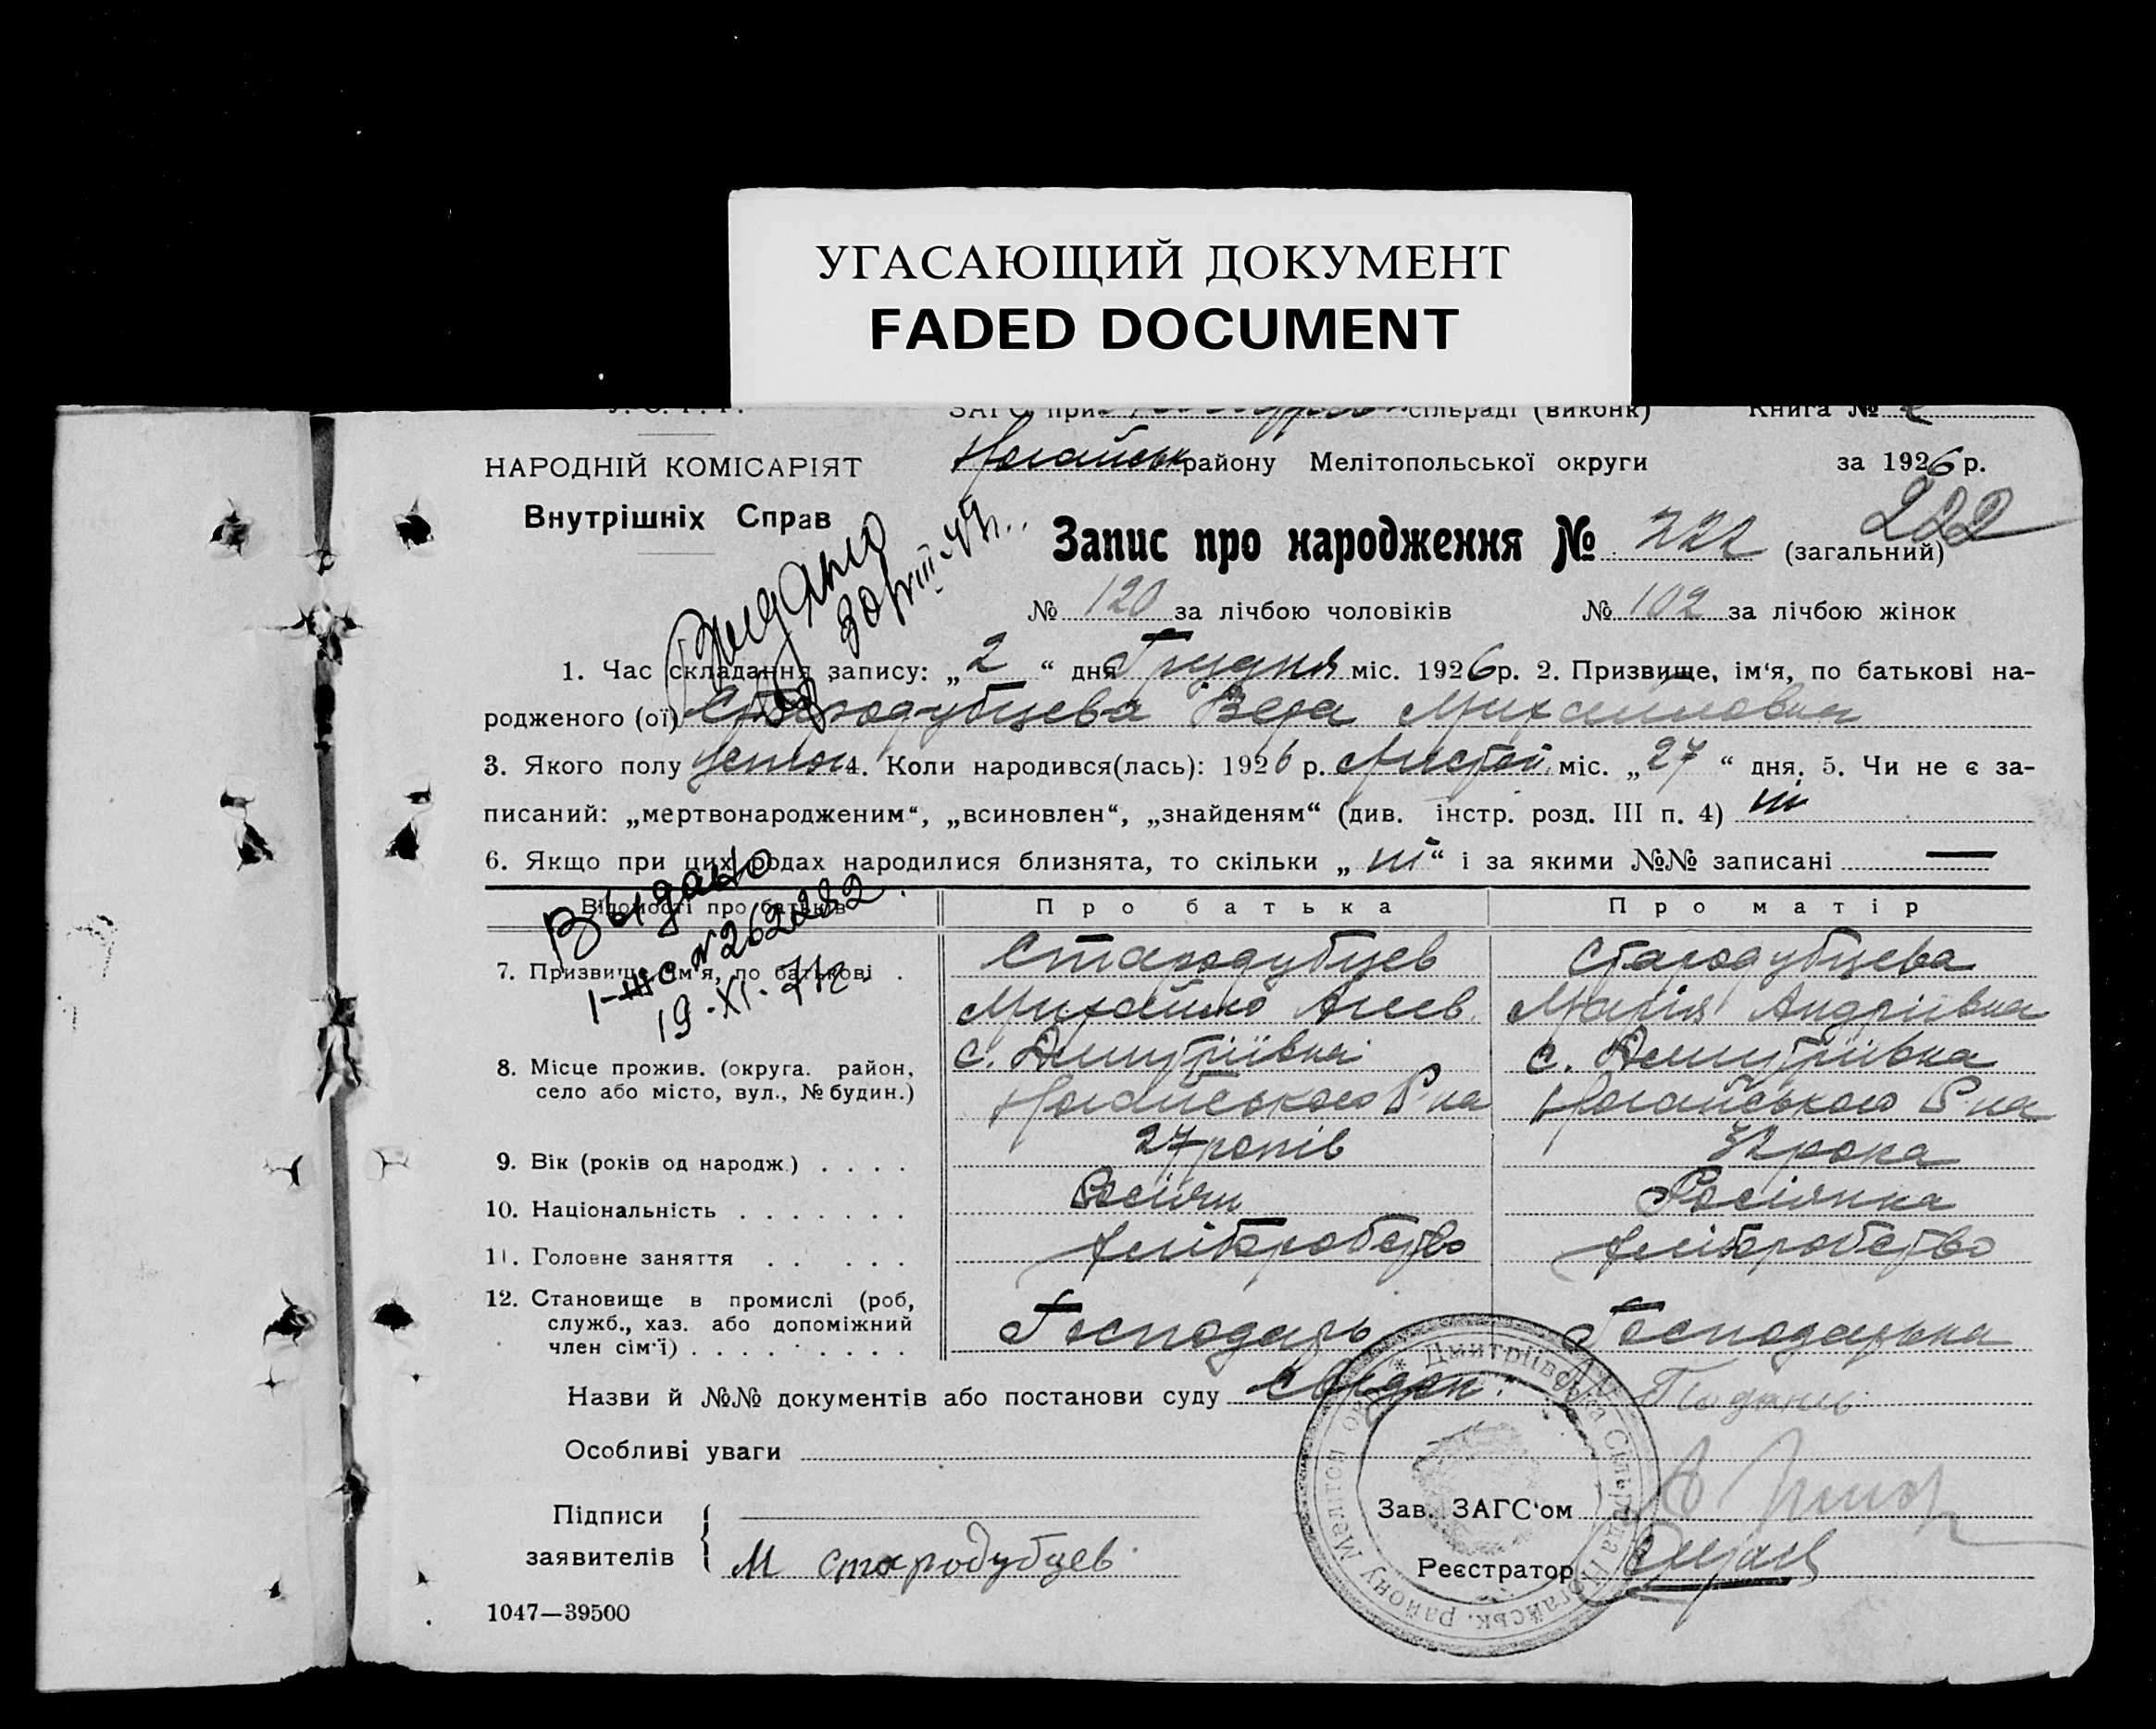 УГАСАЮЩИЙ ДОКУМЕНТ
FADED DOCUMENT
ЗАГС при сільраді (виконк) Книга №
НАРОДНІЙ КОМІСАРІЯТ Ногайськ району Мелітопольської округи за 1926 р.
Внутрішніх Справ
Запис про народження № 222 (загальний) 222
Выдано
№ 120 за лічбою чоловіків № 102 за лічбою жінок
1. Час складання запису: „ 2 “ дня Грудня міс. 1926 р. 2. Призвище, ім‘я, по батькові на-
родженого (ої) Стародубцева Вера Михайловна
3. Якого полу 4. Коли народився(лась): 1926 р. Листоп. міс. „ 27 “ дня. 5. Чи не є за-
писаний: „мертвонародженим“, „всиновлен“, „знайденям“ (див. інстр. розд. III п. 4) ні
6. Якщо при цих родах народилися близнята, то скільки „ ні “ і за якими №№ записані —
Выдано
№ 262282
19-XI-
Відомості про батьків Про батька Про матір
7. Призвище, ім‘я, по батькові . Стародубцев Стародубцева
Михайло Марія Андріівна
8. Місце прожив. (округа. район, с. Дмитріївка с. Дмитріївка
село або місто, вул., № будин.) Ногайського Р-на Ногайського Р-на
9. Вік (років од народж.) . . . . 27 років рока
10. Національність . . . . . . . Росіян Росіянка
11. Головне заняття . . . . . Хліборобство Хліборобство
12. Становище в промислі (роб,
служб., хаз. або допоміжний Господарь Господарька
член сім‘ї) . . . . . . . . .
Назви й №№ документів або постанови суду
Особливі уваги
Підписи
заявителів М Стародубцев
Зав. ЗАГС‘ом
Реєстратор
Дмитріівська Сільрада Ногайськ. району Мелітоп. окр.
1047—39500